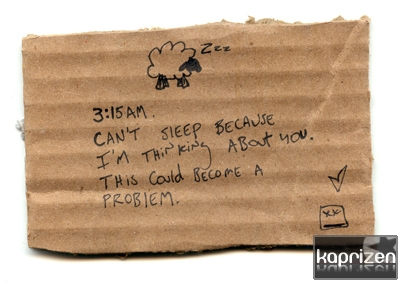 Zzz
3:15AM.
CAN'T SLEEP BECAUSE
I'M THINKING ABOUT YOU.
THIS COULD BECOME A
PROBLEM.
xx
kaprizen